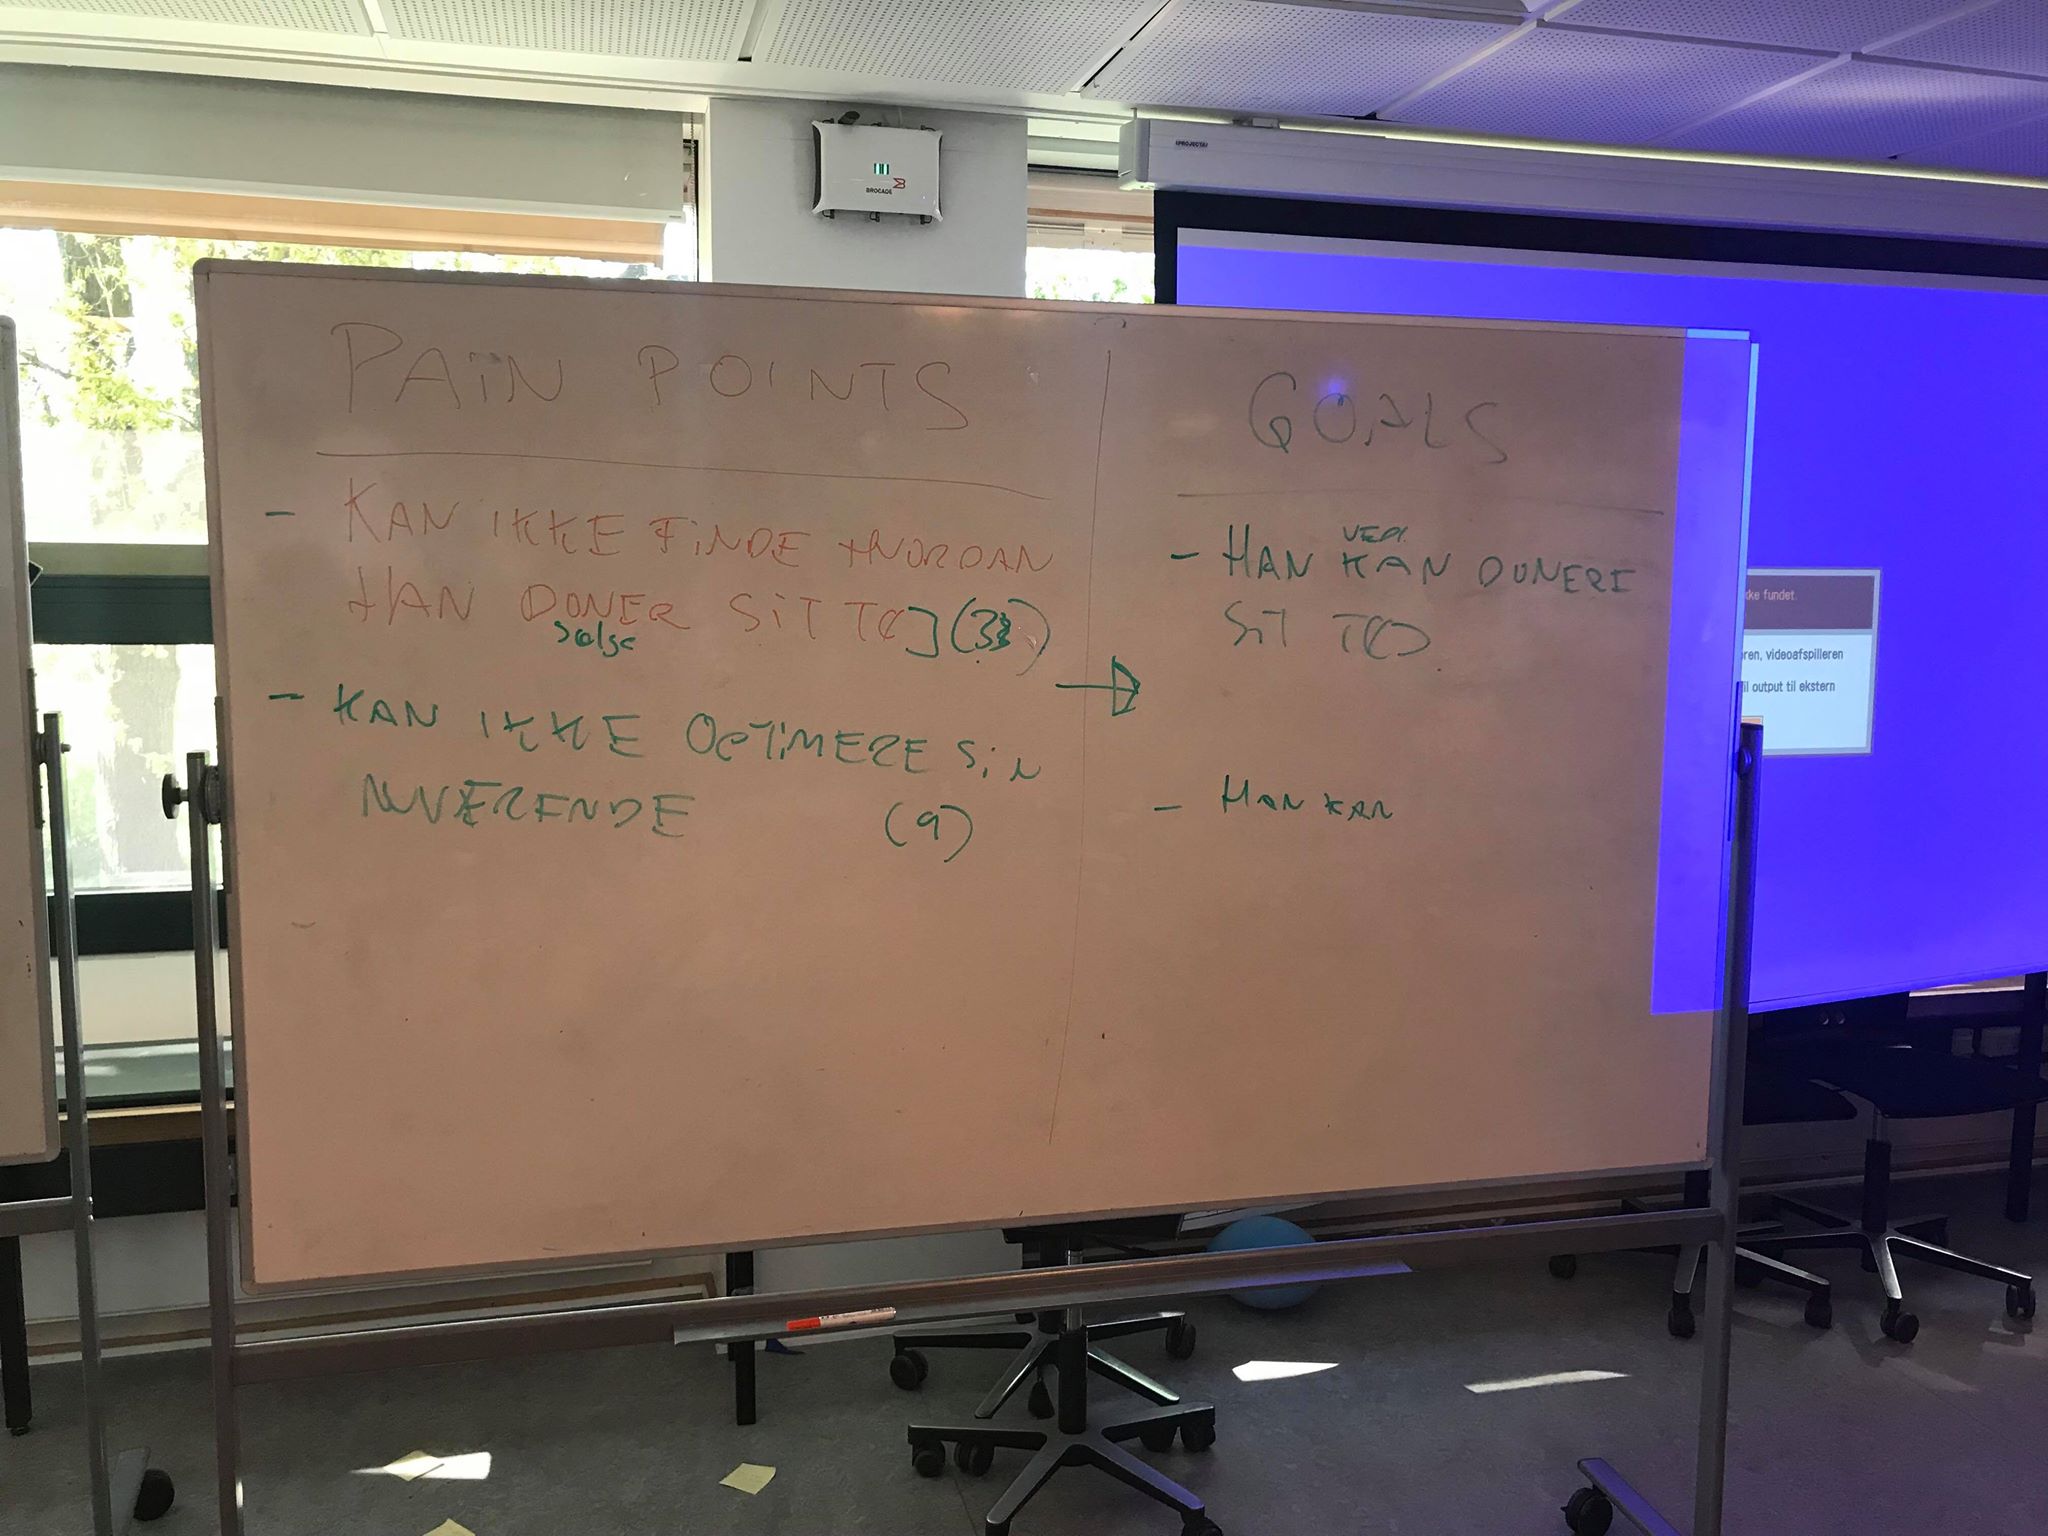 BROCADE
PROJECTA
PAIN POINTS
- KAN IKKE FINDE HVORDAN
HAN DONER SIT TØJ (3)
sælge
- KAN IKKE OPTIMERE SIN
NUVÆRENDE (9)
GOALS
VED.
- HAN KAN DONERE
SIT TØJ
- HAN KAN
kke fundet.
oren, videoafspilleren
til output til ekstern